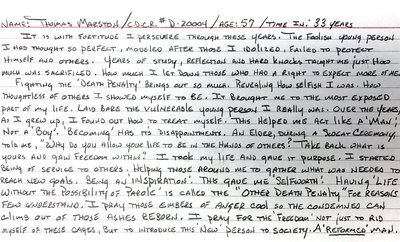 NAME: THOMAS MARSTON / C.D.C.R. # D-20004 / AGE: 57 / TIME IN: 33 YEARS
IT IS WITH FORTITUDE I PERSEVERE THROUGH THESE YEARS. THE FOOLISH YOUNG PERSON
I HAD THOUGHT SO PERFECT, MODELED AFTER THOSE I IDOLIZED, FAILED TO PROTECT
HIMSELF AND OTHERS. YEARS OF STUDY, REFLECTION AND HARD KNOCKS TAUGHT ME JUST HOW
MUCH WAS SACRIFICED. HOW MUCH I LET DOWN THOSE WHO HAD A RIGHT TO EXPECT MORE OF ME.
FIGHTING THE 'DEATH PENALTY' BRINGS OUT SO MUCH. REVEALING HOW SELFISH I WAS. HOW
THOUGHTLESS OF OTHERS I SHOWED MYSELF TO BE. IT BROUGHT ME TO THE MOST EXPOSED
PART OF MY LIFE. LAID BARE THE VULNERABLE YOUNG PERSON I REALLY WAS. OVER THE YEARS,
AS I GREW UP, I FOUND OUT HOW TO TREAT MYSELF. THIS HELPED ME ACT LIKE A 'MAN',
NOT A 'BOY'. 'BECOMING' HAS ITS DISAPPOINTMENTS. AN ELDER, DURING A SWEAT CEREMONY,
TOLD ME, "WHY DO YOU ALLOW YOUR LIFE TO BE IN THE HANDS OF OTHERS? TAKE BACK WHAT IS
YOURS AND GAIN FREEDOM WITHIN." I TOOK MY LIFE AND GAVE IT PURPOSE. I STARTED
BEING OF SERVICE TO OTHERS. HELPING THOSE AROUND ME TO GATHER WHAT WAS NEEDED TO
REACH NEW GOALS. BEING AN INSPIRATION. THIS GAVE ME SELFWORTH. HAVING 'LIFE
WITHOUT THE POSSIBILITY OF PAROLE' IS CALLED THE "OTHER DEATH PENALTY" FOR REASONS
FEW UNDERSTAND. I PRAY THOSE EMBERS OF ANGER COOL SO THE CONDEMNED CAN
CLIMB OUT OF THOSE ASHES REBORN. I PRAY FOR THE 'FREEDOM' NOT JUST TO RID
MYSELF OF THESE CAGES, BUT TO INTRODUCE THIS NEW PERSON TO SOCIETY. A 'REFORMED' MAN.